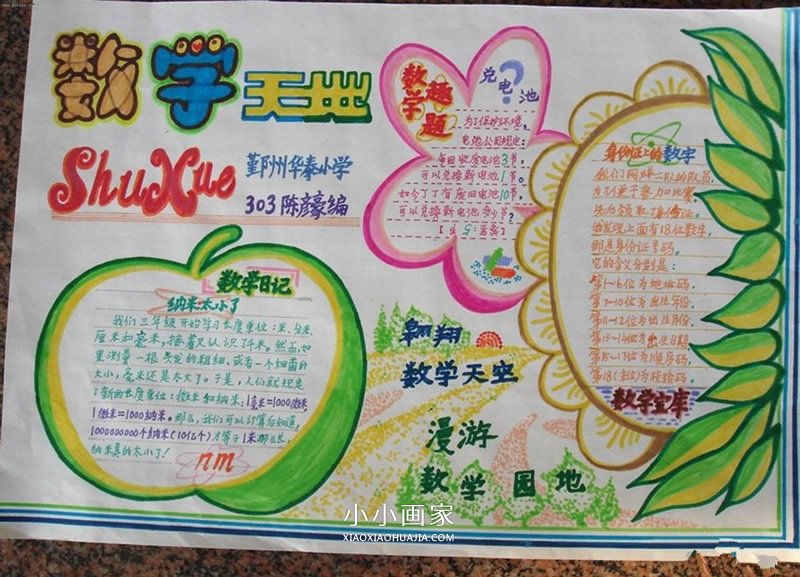 数学天地
ShuXue
鄞州华泰小学
303陈彦豪编
数学趣题
兑电池
?
为了保护环境,
电池公司规定:
每回收废电池3节,
可以兑换新电池1节。
如今丁丁有废旧电池10节,
可以兑换新电池多少节?
数学日记
纳米太小了
我们三年级开始学习长度单位:米、分米、
厘米和毫米,接着又认识了千米。然而,如
果测量一根头发的粗细,或者一个细菌的
大小,毫米还是太大了。于是,人们就规定
了新的长度单位:微米和纳米:1毫米=1000微米
1微米=1000纳米。那么,我们可以计算后知道,
1000000000个纳米(10亿个)才等于1米那么长,
纳米真的太小了!
nm
翱翔
数学天空
漫游
数学园地
身份证上的数字
我们网球二队的队员,
为了便于参加比赛,
上面有18位数字,
那是身份证号码。
它的含义分别是:
第1~6位为地址码。
第7~10位为出生年份。
第11~12位为出生月份。
第13~14位为出生日期。
第15~17位为顺序码。
第18(末位)为校验码。
数学宝库
小小画家
XIAOXIAOHUAJIA.COM